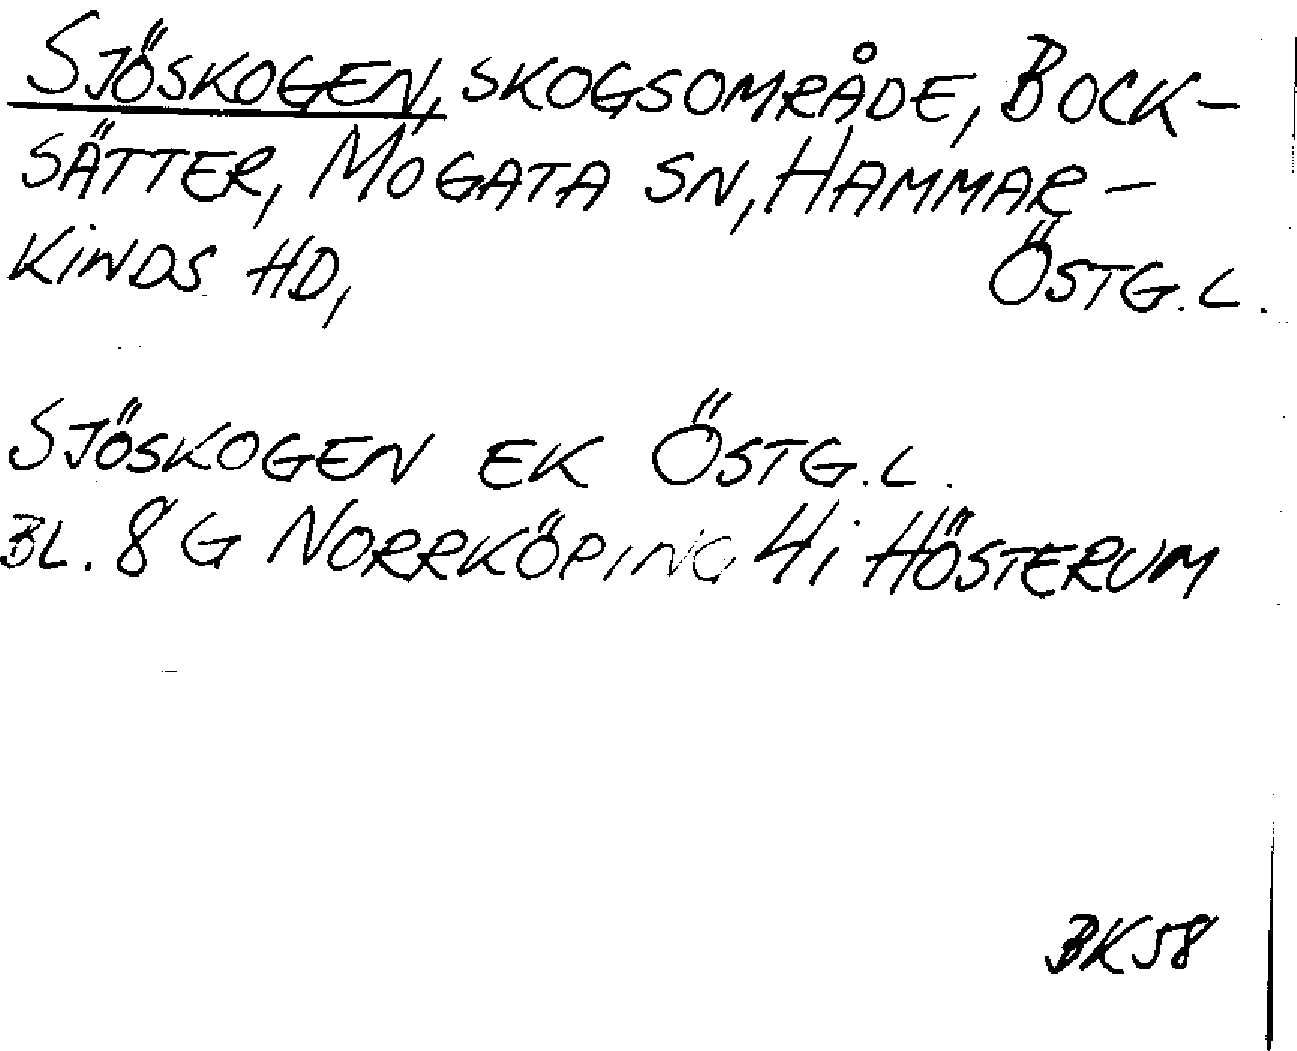 SJÖSKOGEN, SKOGSOMRÅDE, BOCK-
SÄTTER, MOGATA SN, HAMMAR-
KINDS HD, ÖSTG.L.
SJÖSKOGEN EK ÖSTG.L.
BL. 8G NORRKÖPING 4i HÖSTERUM
BK58